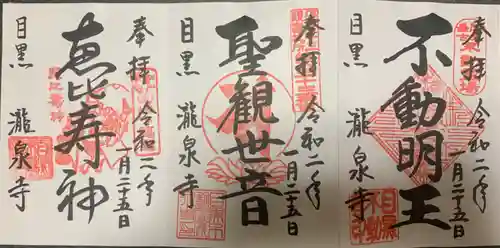 奉拝
令和二年
一月二十五日
不動明王
目黒 瀧泉寺
奉拝
令和二年
一月二十五日
聖觀世音
目黒 瀧泉寺
奉拝
令和二年
一月二十五日
恵比寿神
目黒 瀧泉寺